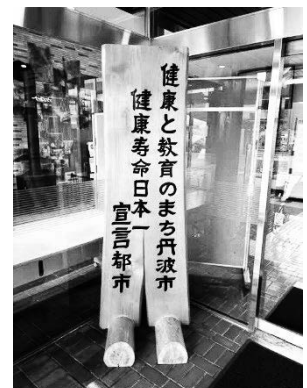 健康と教育のまち丹波市
健康寿命日本一
宣言都市